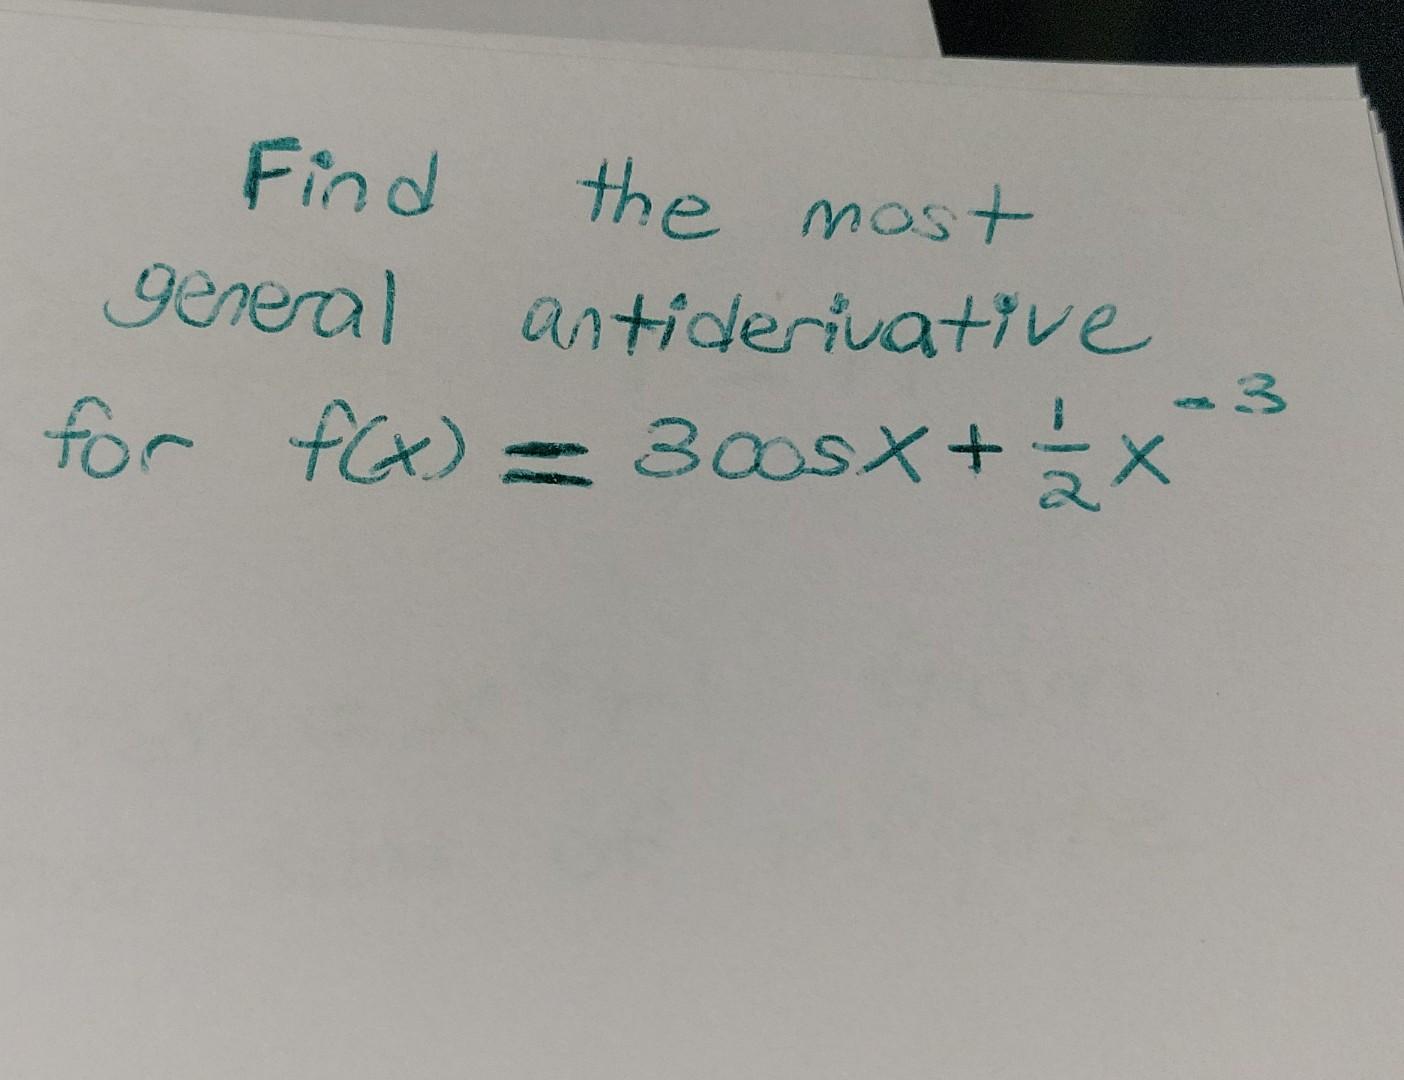 Find the most
general antiderivative
for f(x) = 3 cos x + 1/2 x^-3